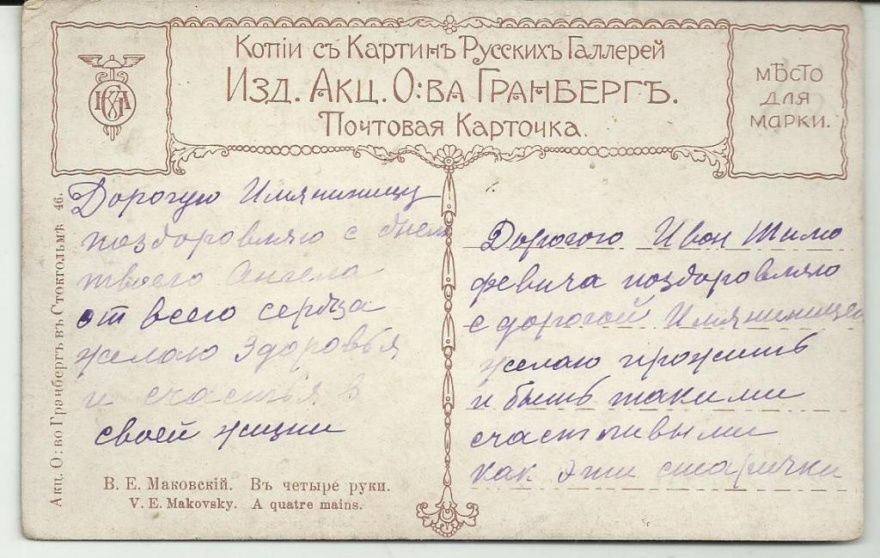 Копіи съ Картинъ Русскихъ Галлерей
Изд. Акц. О:ва Гранбергъ.
Почтовая Карточка.
мѣсто
для
марки.
Дорогую Имянинницу
поздоровляю с днем
твоего Ангела
от всего сердца
желаю здоровья
и счастья в
своей жизни
Дорогого Иван Тимо
февича поздоровляю
с дорогой Имянинницей
желаю прожить
и быть такими
счастливыми
как эти старички
В. Е. Маковскій. Въ четыре руки.
V. E. Makovsky. A quatre mains.
Акц. О:во Гранбергъ въ Стокгольмѣ 46.